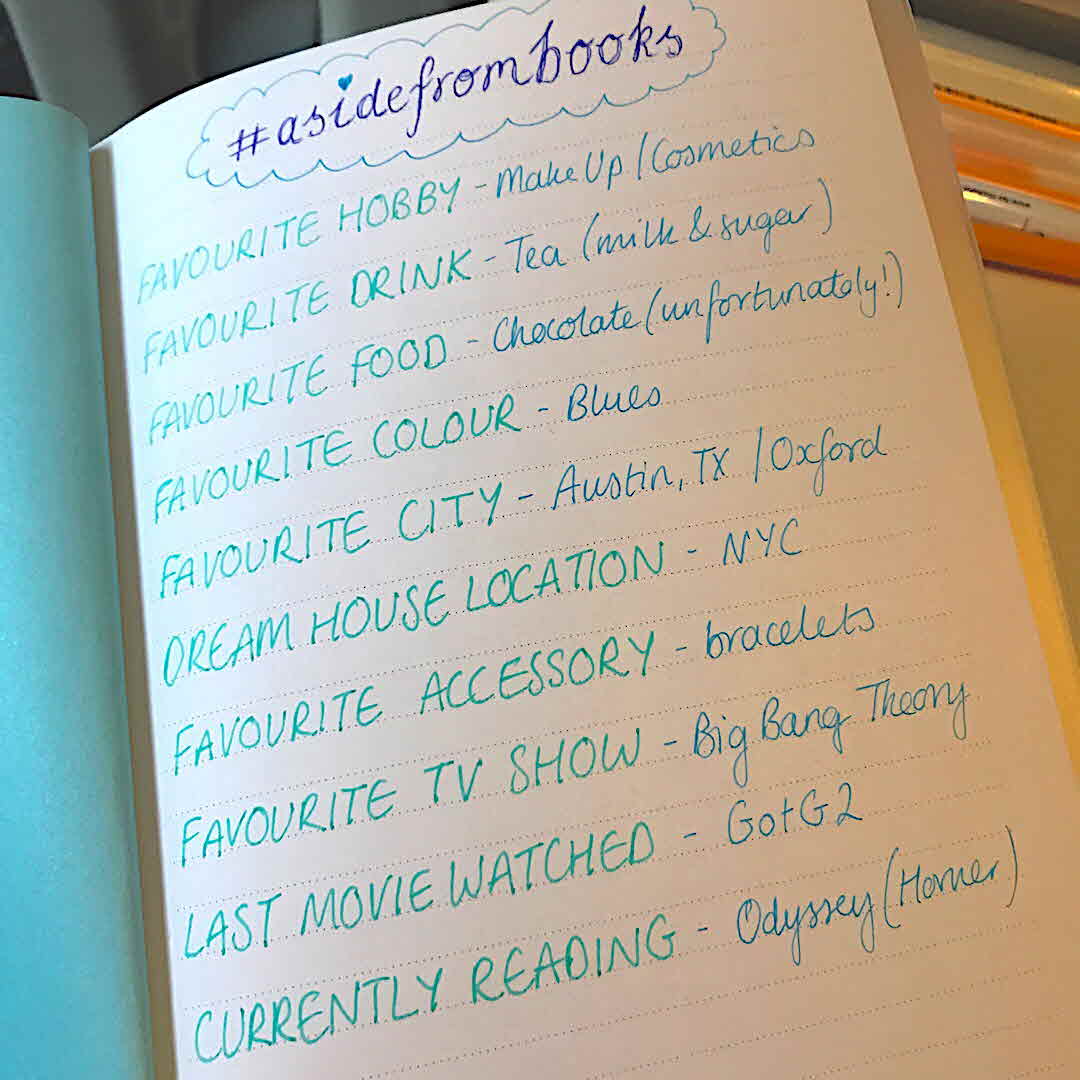 #asidefrombooks
FAVOURITE HOBBY - Make Up / Cosmetics
FAVOURITE DRINK - Tea (milk & sugar)
FAVOURITE FOOD - Chocolate (unfortunately!)
FAVOURITE COLOUR - Blues
FAVOURITE CITY - Austin, TX / Oxford
DREAM HOUSE LOCATION - NYC
FAVOURITE ACCESSORY - bracelets
FAVOURITE TV SHOW - Big Bang Theory
LAST MOVIE WATCHED - GotG 2
CURRENTLY READING - Odyssey (Homer)